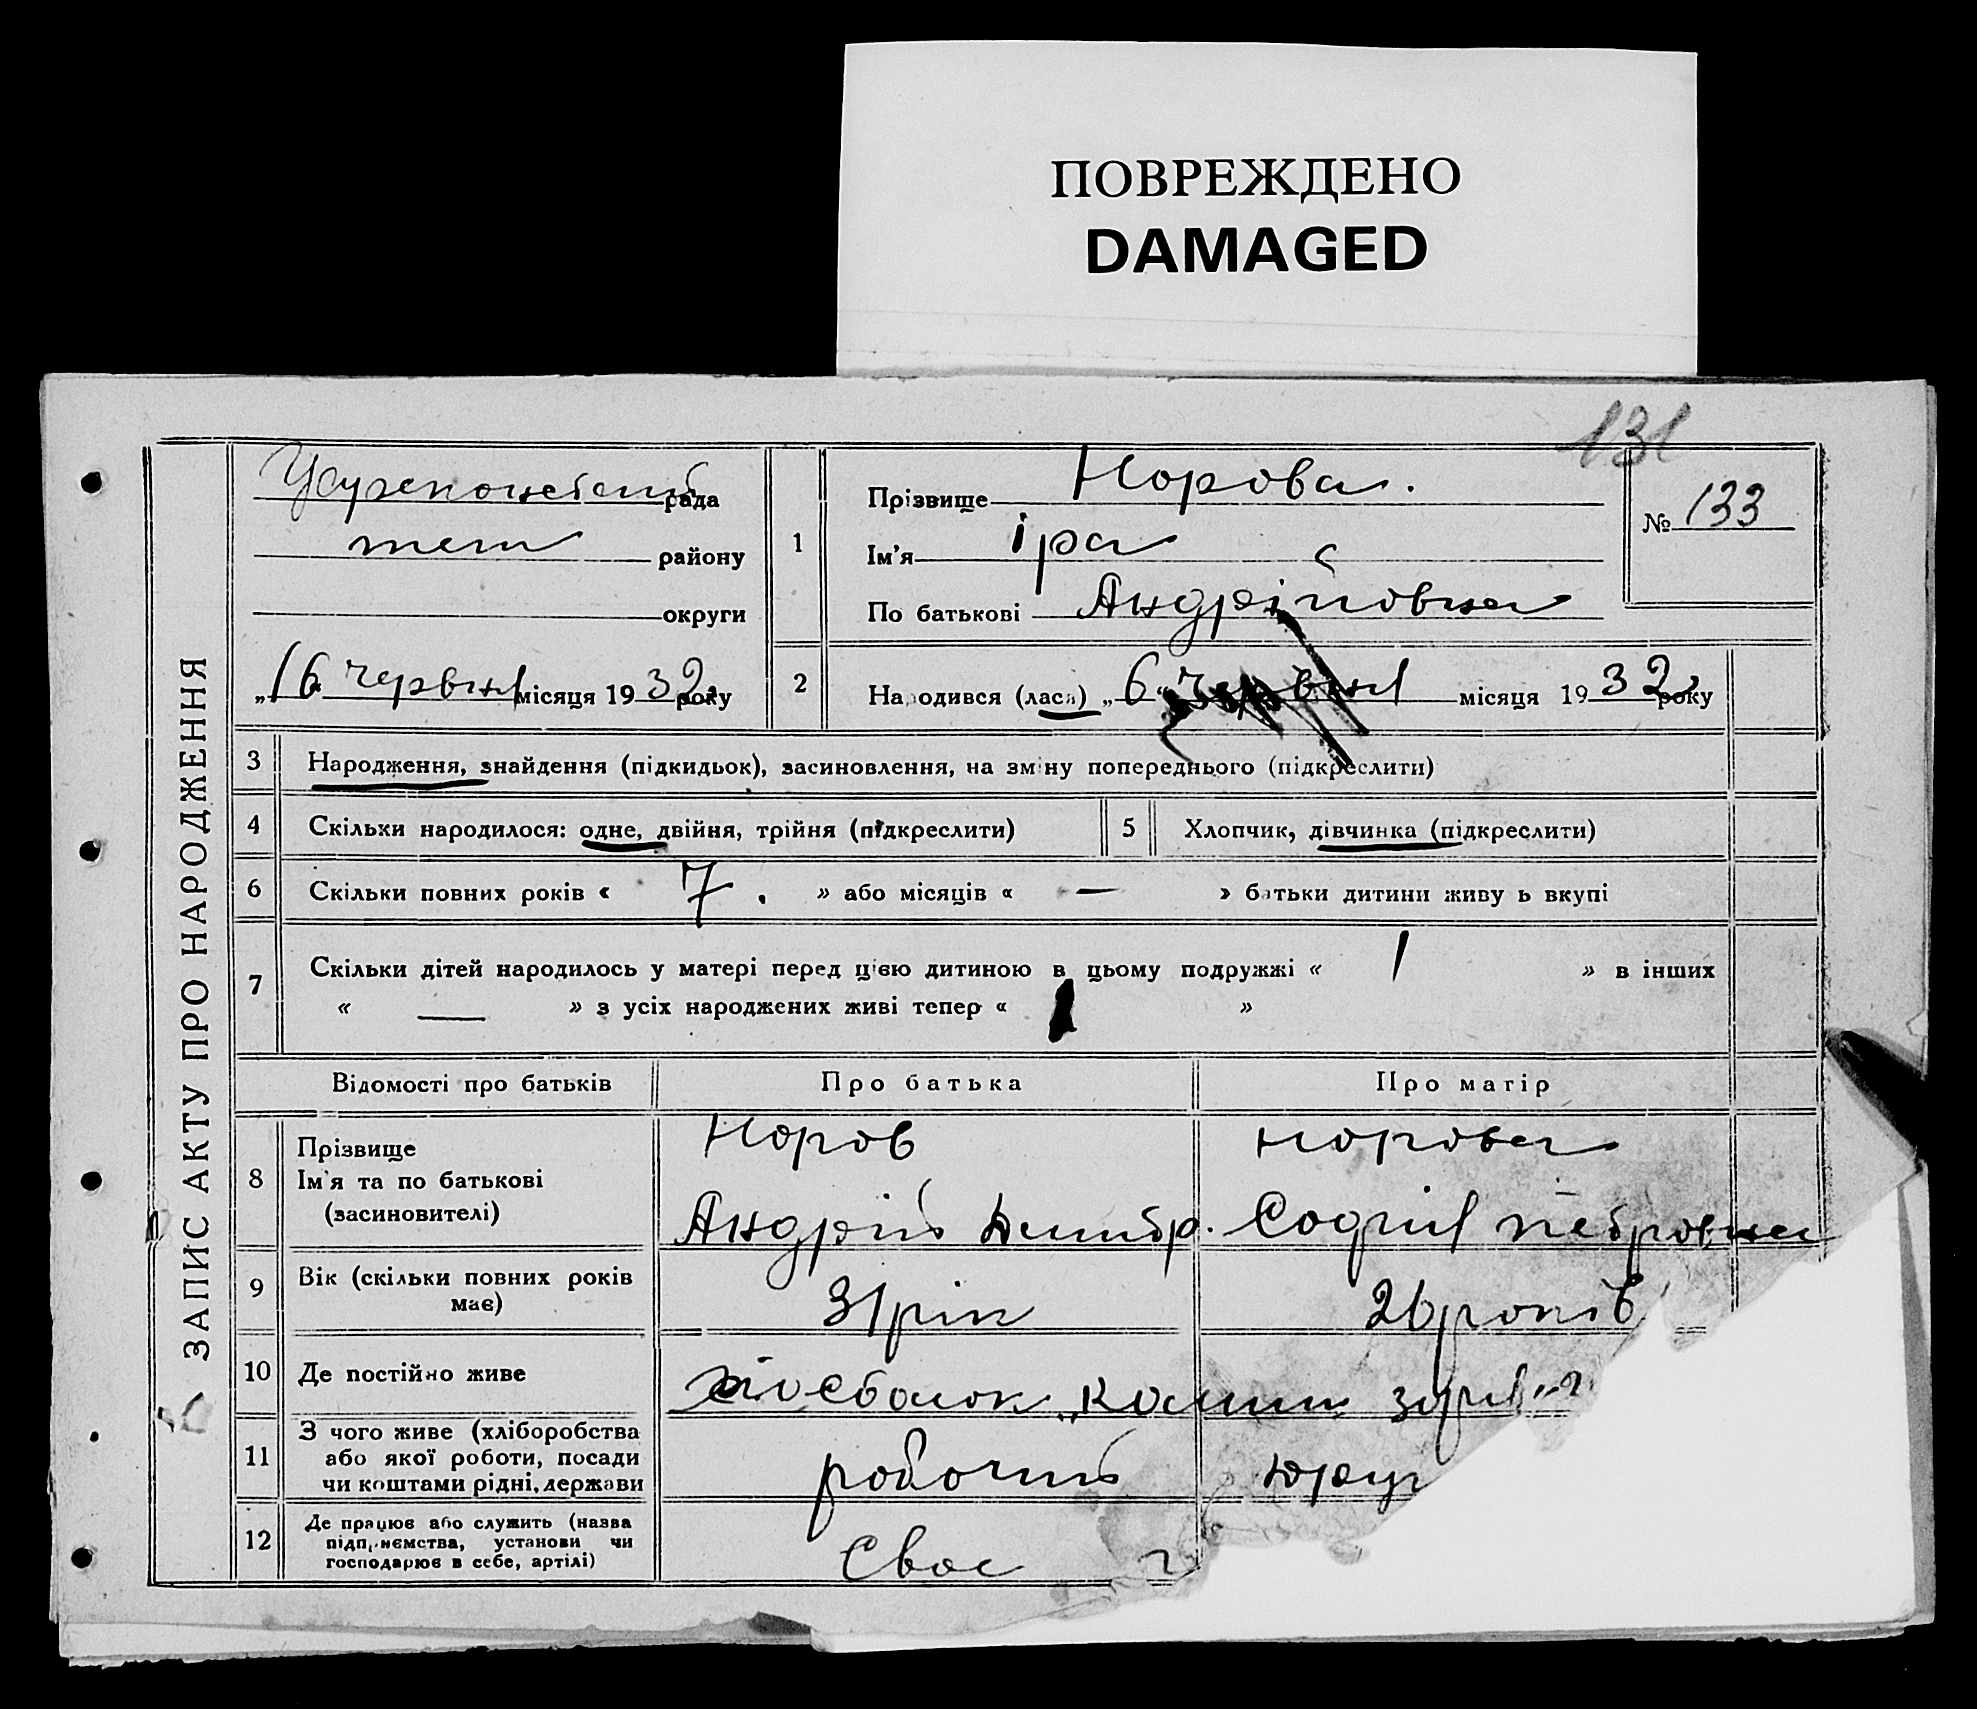 ПОВРЕЖДЕНО
DAMAGED
131
ЗАПИС АКТУ ПРО НАРОДЖЕННЯ
рада
теж району
округи
„16“ червня місяця 1932 року
1
Прізвище Норова.
Ім'я Іра
По батькові Андріївна
№ 133
2
Народився (лася) „6“ червня місяця 1932 року
3 Народження, знайдення (підкидьок), засиновлення, на зміну попереднього (підкреслити)
4 Скільки народилося: одне, двійня, трійня (підкреслити)
5 Хлопчик, дівчинка (підкреслити)
6 Скільки повних років « 7. » або місяців « — » батьки дитини живуть вкупі
7 Скільки дітей народилось у матері перед цією дитиною в цьому подружжі « 1 » в інших
« — » з усіх народжених живі тепер « 1 »
Відомості про батьків Про батька Про матір
8 Прізвище
Ім'я та по батькові
(засиновителі)
Норов
Андрій Дмитр.
Норова
Софія Петровна
9 Вік (скільки повних років
має)
31 рік
26 років
10 Де постійно живе
зоря"
11 З чого живе (хліборобства
або якої роботи, посади
чи коштами рідні, держави
робочий
12 Де працює або служить (назва
підприємства, установи чи
господарює в себе, артілі)